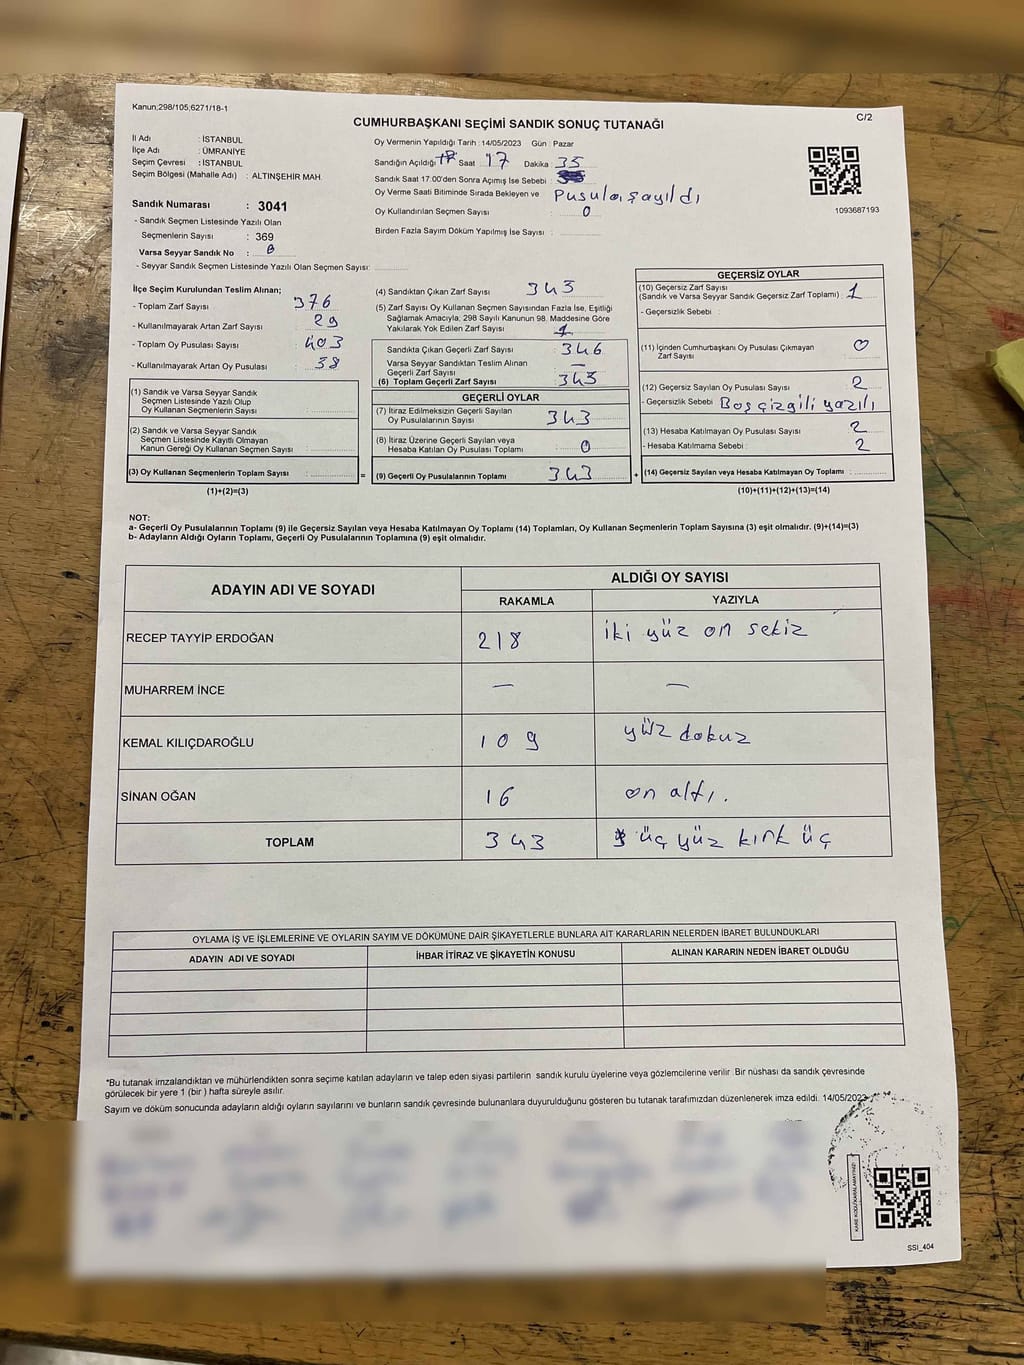 Kanun;298/105,6271/18-1
C/2
CUMHURBAŞKANI SEÇİMİ SANDIK SONUÇ TUTANAĞI
İl Adı : İSTANBUL
İlçe Adı : ÜMRANİYE
Seçim Çevresi : İSTANBUL
Seçim Bölgesi (Mahalle Adı) : ALTINŞEHİR MAH.
Sandık Numarası : 3041
- Sandık Seçmen Listesinde Yazılı Olan
Seçmenlerin Sayısı : 369
Varsa Seyyar Sandık No :
- Seyyar Sandık Seçmen Listesinde Yazılı Olan Seçmen Sayısı:
Oy Vermenin Yapıldığı Tarih : 14/05/2023 Gün : Pazar
Sandığın Açıldığı Saat 17 Dakika 35
Sandık Saat 17:00'den Sonra Açımış İse Sebebi :
Oy Verme Saati Bitiminde Sırada Bekleyen ve Pusula sayıldı
Oy Kullandırılan Seçmen Sayısı : 0
Birden Fazla Sayım Döküm Yapılmış İse Sayısı :
1093687193
İlçe Seçim Kurulundan Teslim Alınan;
- Toplam Zarf Sayısı : 376
- Kullanılmayarak Artan Zarf Sayısı : 29
- Toplam Oy Pusulası Sayısı : 403
- Kullanılmayarak Artan Oy Pusulası : 38
(1) Sandık ve Varsa Seyyar Sandık
Seçmen Listesinde Yazılı Olup
Oy Kullanan Seçmenlerin Sayısı :
(2) Sandık ve Varsa Seyyar Sandık
Seçmen Listesinde Kayıtlı Olmayan
Kanun Gereği Oy Kullanan Seçmen Sayısı :
(3) Oy Kullanan Seçmenlerin Toplam Sayısı :
(1)+(2)=(3)
(4) Sandıktan Çıkan Zarf Sayısı : 343
(5) Zarf Sayısı Oy Kullanan Seçmen Sayısından Fazla İse, Eşitliği
Sağlamak Amacıyla; 298 Sayılı Kanunun 98. Maddesine Göre
Yakılarak Yok Edilen Zarf Sayısı : 1
Sandıkta Çıkan Geçerli Zarf Sayısı : 346
Varsa Seyyar Sandıktan Teslim Alınan
Geçerli Zarf Sayısı : —
(6) Toplam Geçerli Zarf Sayısı : 343
GEÇERLİ OYLAR
(7) İtiraz Edilmeksizin Geçerli Sayılan
Oy Pusulalarının Sayısı : 343
(8) İtiraz Üzerine Geçerli Sayılan veya
Hesaba Katılan Oy Pusulası Toplamı : 0
= (9) Geçerli Oy Pusulalarının Toplamı : 343 +
GEÇERSİZ OYLAR
(10) Geçersiz Zarf Sayısı
(Sandık ve Varsa Seyyar Sandık Geçersiz Zarf Toplamı) : 1
- Geçersizlik Sebebi :
(11) İçinden Cumhurbaşkanı Oy Pusulası Çıkmayan
Zarf Sayısı : 0
(12) Geçersiz Sayılan Oy Pusulası Sayısı : 2
- Geçersizlik Sebebi : Boş çizgili yazılı
(13) Hesaba Katılmayan Oy Pusulası Sayısı : 2
- Hesaba Katılmama Sebebi : 2
(14) Geçersiz Sayılan veya Hesaba Katılmayan Oy Toplamı :
(10)+(11)+(12)+(13)=(14)
NOT:
a- Geçerli Oy Pusulalarının Toplamı (9) ile Geçersiz Sayılan veya Hesaba Katılmayan Oy Toplamı (14) Toplamları, Oy Kullanan Seçmenlerin Toplam Sayısına (3) eşit olmalıdır. (9)+(14)=(3)
b- Adayların Aldığı Oyların Toplamı, Geçerli Oy Pusulalarının Toplamına (9) eşit olmalıdır.
ADAYIN ADI VE SOYADI
ALDIĞI OY SAYISI
RAKAMLA YAZIYLA
RECEP TAYYİP ERDOĞAN 218 iki yüz on sekiz
MUHARREM İNCE — —
KEMAL KILIÇDAROĞLU 109 yüz dokuz
SİNAN OĞAN 16 on altı.
TOPLAM 343 üç yüz kırk üç
OYLAMA İŞ VE İŞLEMLERİNE VE OYLARIN SAYIM VE DÖKÜMÜNE DAİR ŞİKAYETLERLE BUNLARA AİT KARARLARIN NELERDEN İBARET BULUNDUKLARI
ADAYIN ADI VE SOYADI İHBAR İTİRAZ VE ŞİKAYETİN KONUSU ALINAN KARARIN NEDEN İBARET OLDUĞU
*Bu tutanak imzalandıktan ve mühürlendikten sonra seçime katılan adayların ve talep eden siyasi partilerin sandık kurulu üyelerine veya gözlemcilerine verilir .Bir nüshası da sandık çevresinde
görülecek bir yere 1 (bir ) hafta süreyle asılır.
Sayım ve döküm sonucunda adayların aldığı oyların sayılarını ve bunların sandık çevresinde bulunanlara duyurulduğunu gösteren bu tutanak tarafımızdan düzenlenerek imza edildi. 14/05/2023
KARE KODU KARALAMAYINIZ!
SSI_404